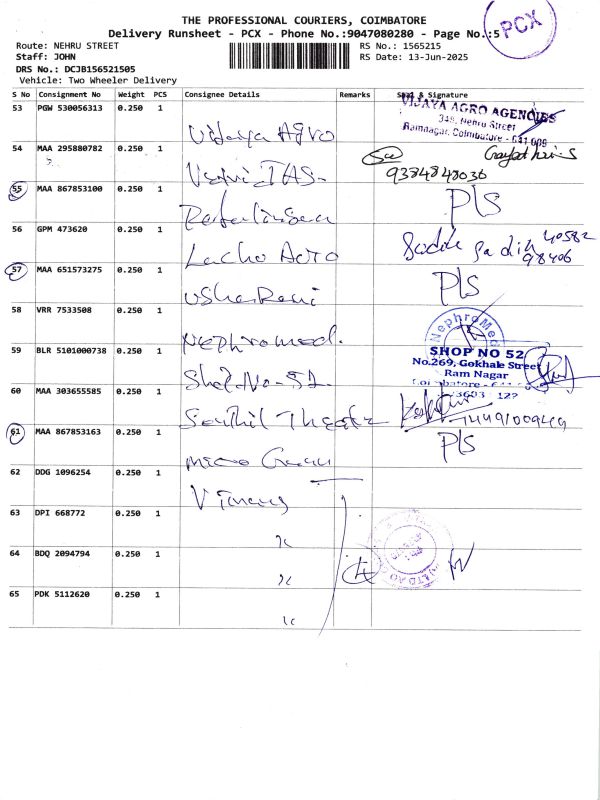 THE PROFESSIONAL COURIERS, COIMBATORE
Delivery Runsheet - PCX - Phone No.:9047080280 - Page No.:5
PCX
Route: NEHRU STREET
RS No.: 1565215
Staff: JOHN
RS Date: 13-Jun-2025
DRS No.: DCJB156521505
Vehicle: Two Wheeler Delivery
S No Consignment No Weight PCS Consignee Details Remarks Seal & Signature
53 PGW 530056313 0.250 1 Vijaya Agro
VIJAYA AGRO AGENCIES
349, Nehru Street
Ramnagar, Coimbatore - 641 009
54 MAA 295880782 0.250 1
9384848036
55 MAA 867853100 0.250 1 P/S
56 GPM 473620 0.250 1
40582
98406
57 MAA 651573275 0.250 1 Usha Rani P/S
58 VRR 7533508 0.250 1 Nephromed.
NephroMed
59 BLR 5101000738 0.250 1 Shop.No-52
SHOP NO 52
No.269, Gokhale Street
Ram Nagar
60 MAA 303655585 0.250 1 Senthil Theatre
61 MAA 867853163 0.250 1 Micro P/S
62 DDG 1096254 0.250 1
63 DPI 668772 0.250 1
64 BDQ 2094794 0.250 1
65 PDK 5112620 0.250 1